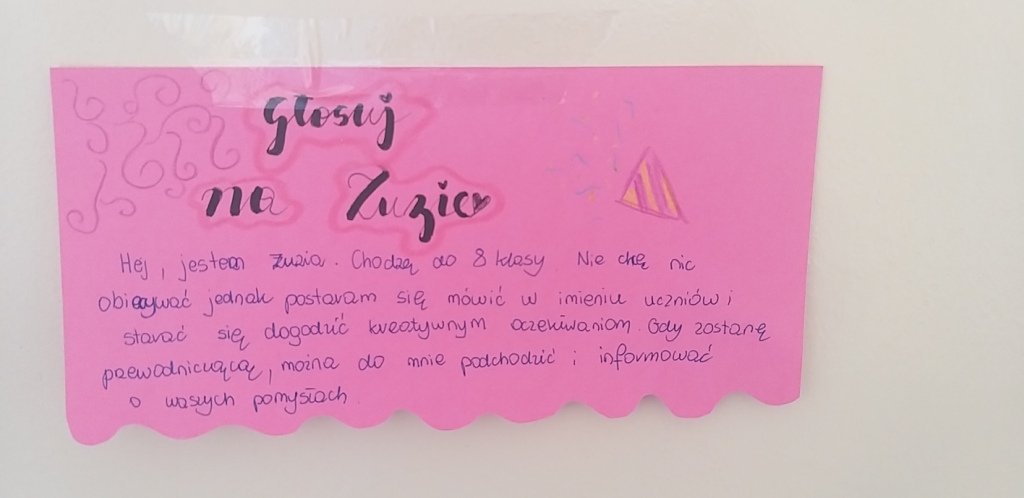 Głosuj
na Zuzię
Hej, jestem Zuzia. Chodzę do 8 klasy. Nie chę nic
obiecywać jednak postaram się mówić w imieniu uczniów i
starać się dogodzić kreatywnym oczekiwaniom. Gdy zostanę
przewodniczącą, można do mnie podchodzić i informować
o waszych pomysłach